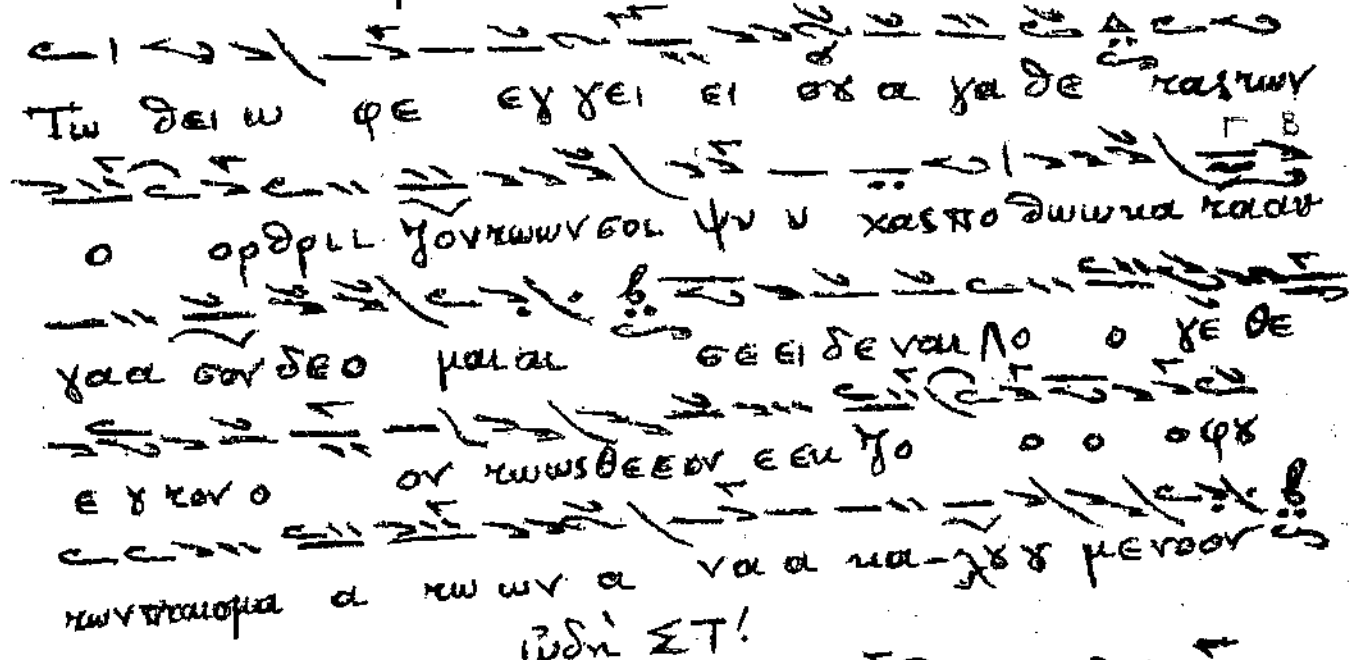 Τω θει ω φε εγ γει ει σȣ α γα θε τας των
ο ορθριι ζοντωων σοι ψυ υ χας πο θωω κα τααυ
γαα σον δεο μαιαι σε ει δε ναι Λο ο γε θε
ε ȣ τον ο ον τωως θεεον ε εκ ζο ο ο οφȣ
των πταισμα α τω ων α να α κα-λȣ ȣ μενοον
ᾠδὴ ΣΤ'